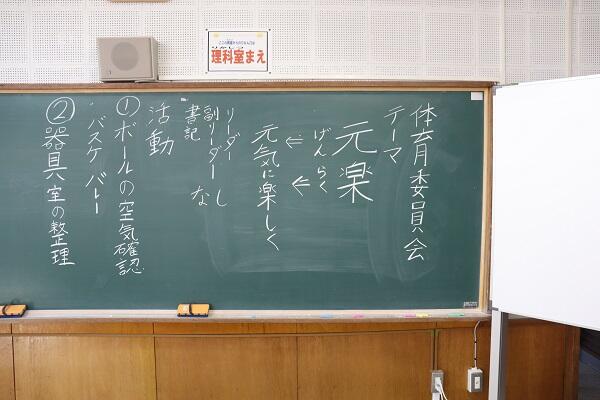 理科室まえ
体育委員会
テーマ
元楽
げんらく
⇐ ⇐
元気に楽しく
リーダー
副リーダー なし
書記
活動
①ボールの空気確認
・バスケ バレー
②器具室の整理